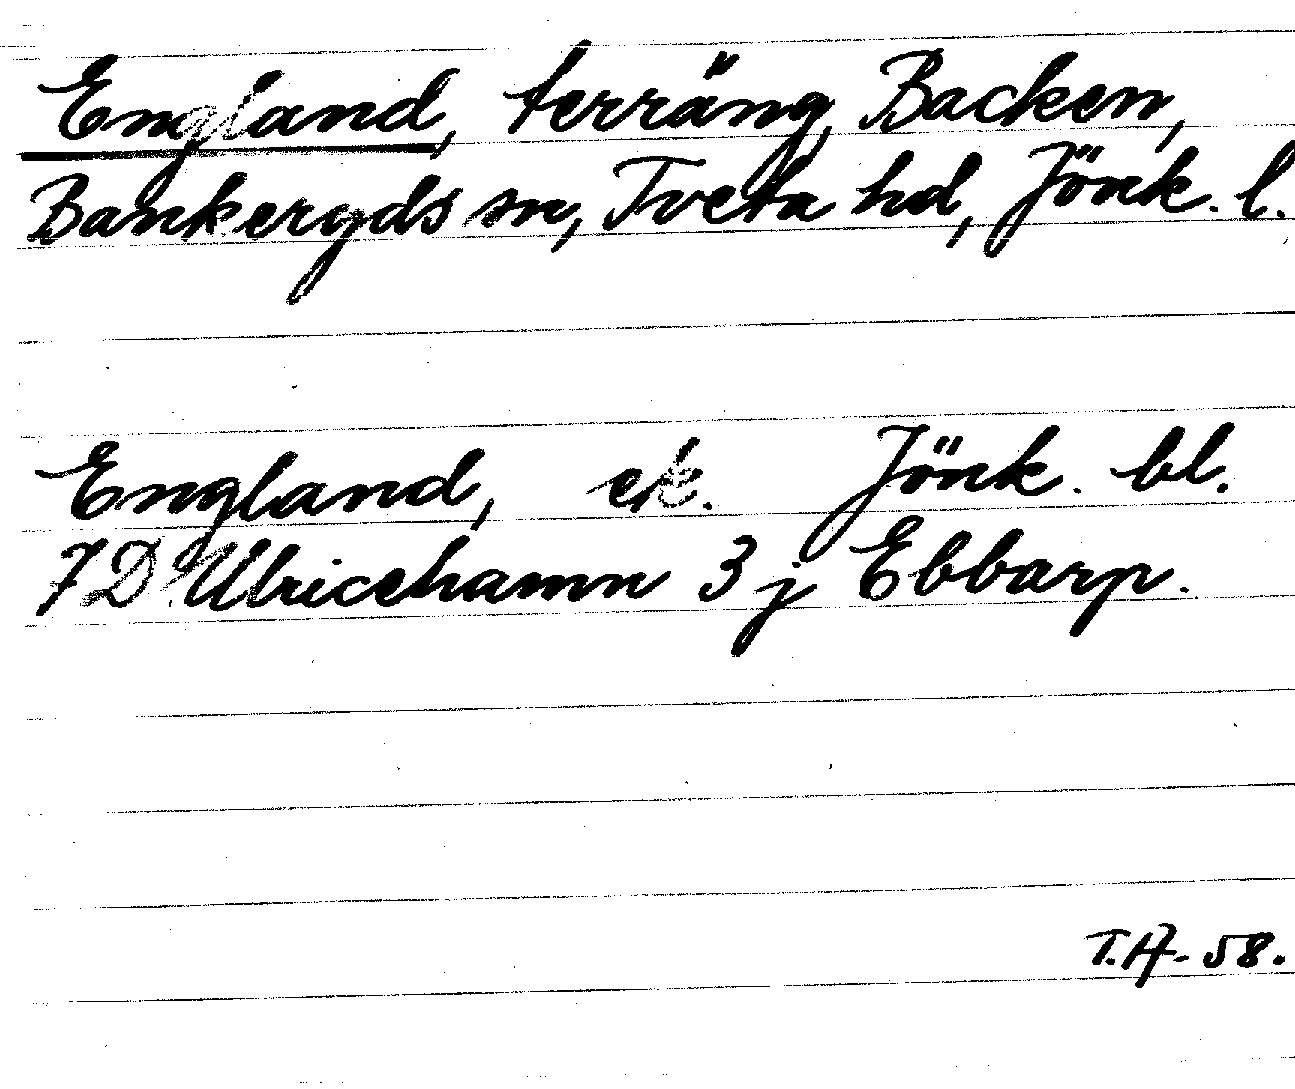 England, terräng, Backen,
Bankeryds sn, Tveta hd, Jönk. l.
England, ek. Jönk. bl.
7D Ulricehamn 3 j Ebbarp.
T.A. 58.